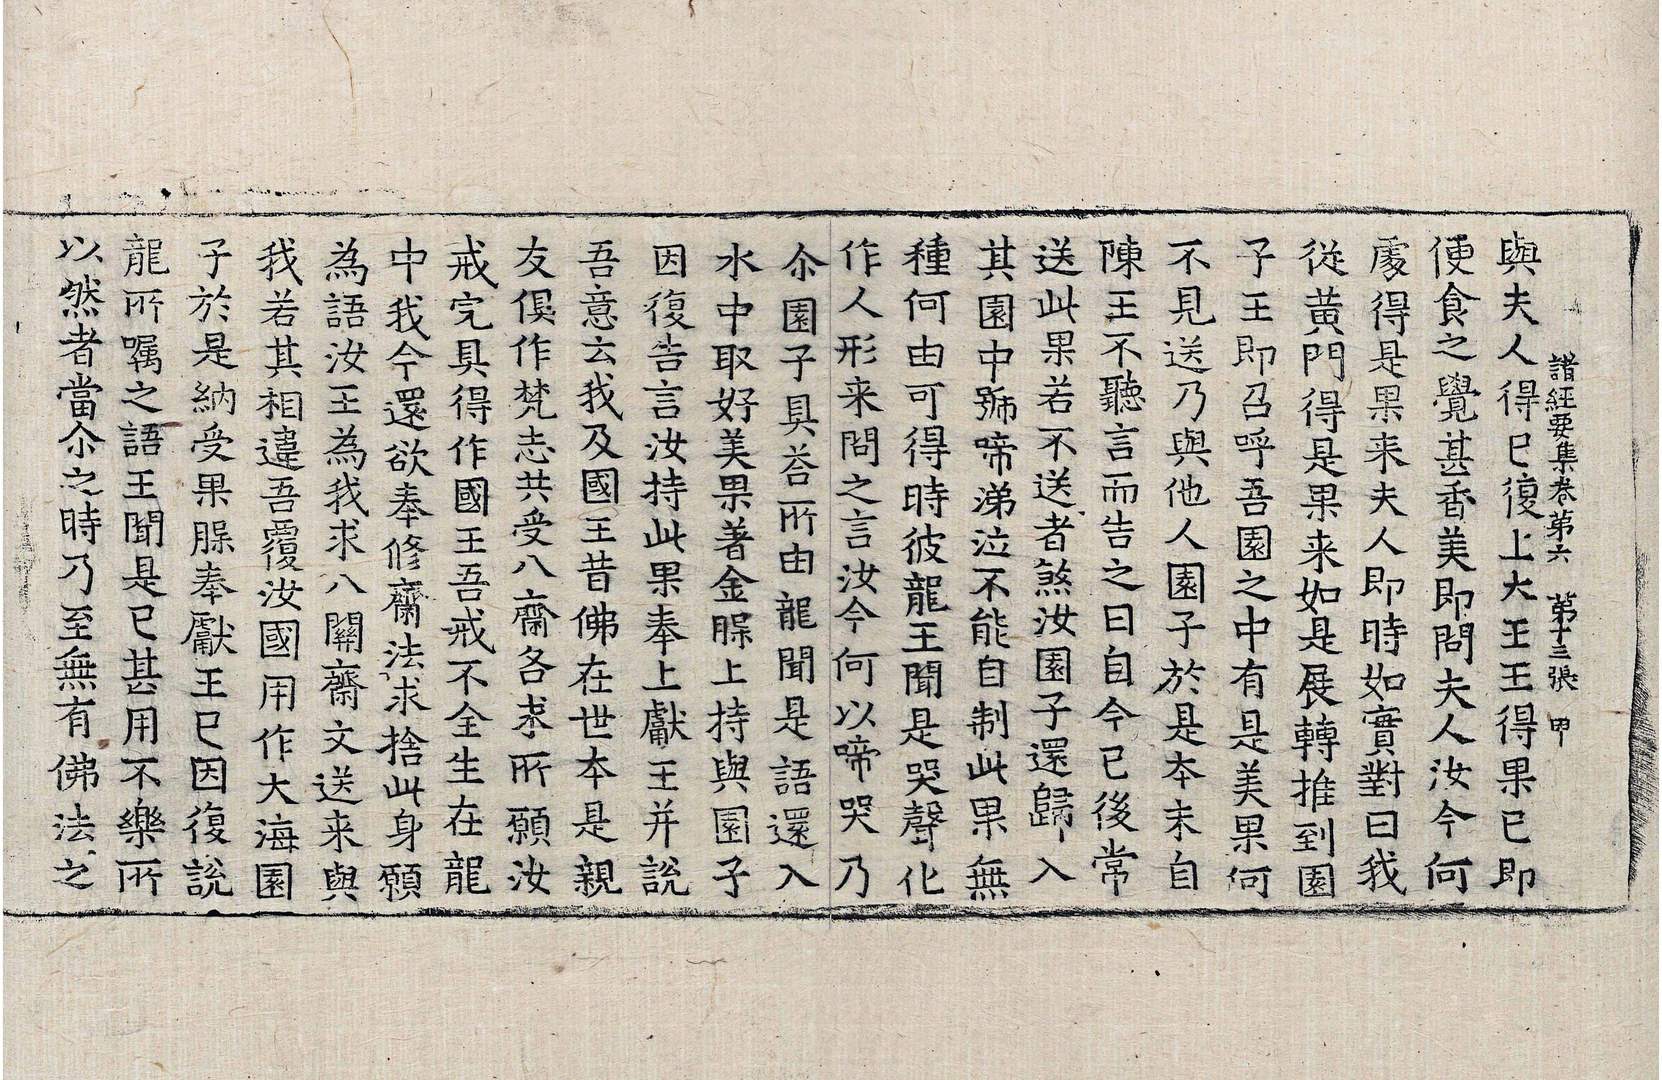 諸經要集卷第六　第十三張　甲
與夫人得已復上大王王得果已即
便食之覺甚香美即問夫人汝今何
處得是果来夫人即時如實對曰我
從黃門得是果来如是展轉推到園
子王即召呼吾園之中有是美果何
不見送乃與他人園子於是夲末自
陳王不聽言而告之曰自今已後常
送此果若不送者煞汝園子還歸入
其園中號啼涕泣不能自制此果無
種何由可得時彼龍王聞是哭聲化
作人形来問之言汝今何以啼哭乃
尒園子具荅所由龍聞是語還入
水中取好美果著金槃上持與園子
因復告言汝持此果奉上獻王并說
吾意云我及國王昔佛在世夲是親
友俱作梵志共受八齋各求所願汝
戒完具得作國王吾戒不全生在龍
中我今還欲奉修齋法求捨此身願
為語汝王為我求八關齋文送来與
我若其相違吾覆汝國用作大海園
子於是納受果槃奉獻王已因復說
龍所囑之語王聞是已甚用不樂所
以然者當尒之時乃至無有佛法之